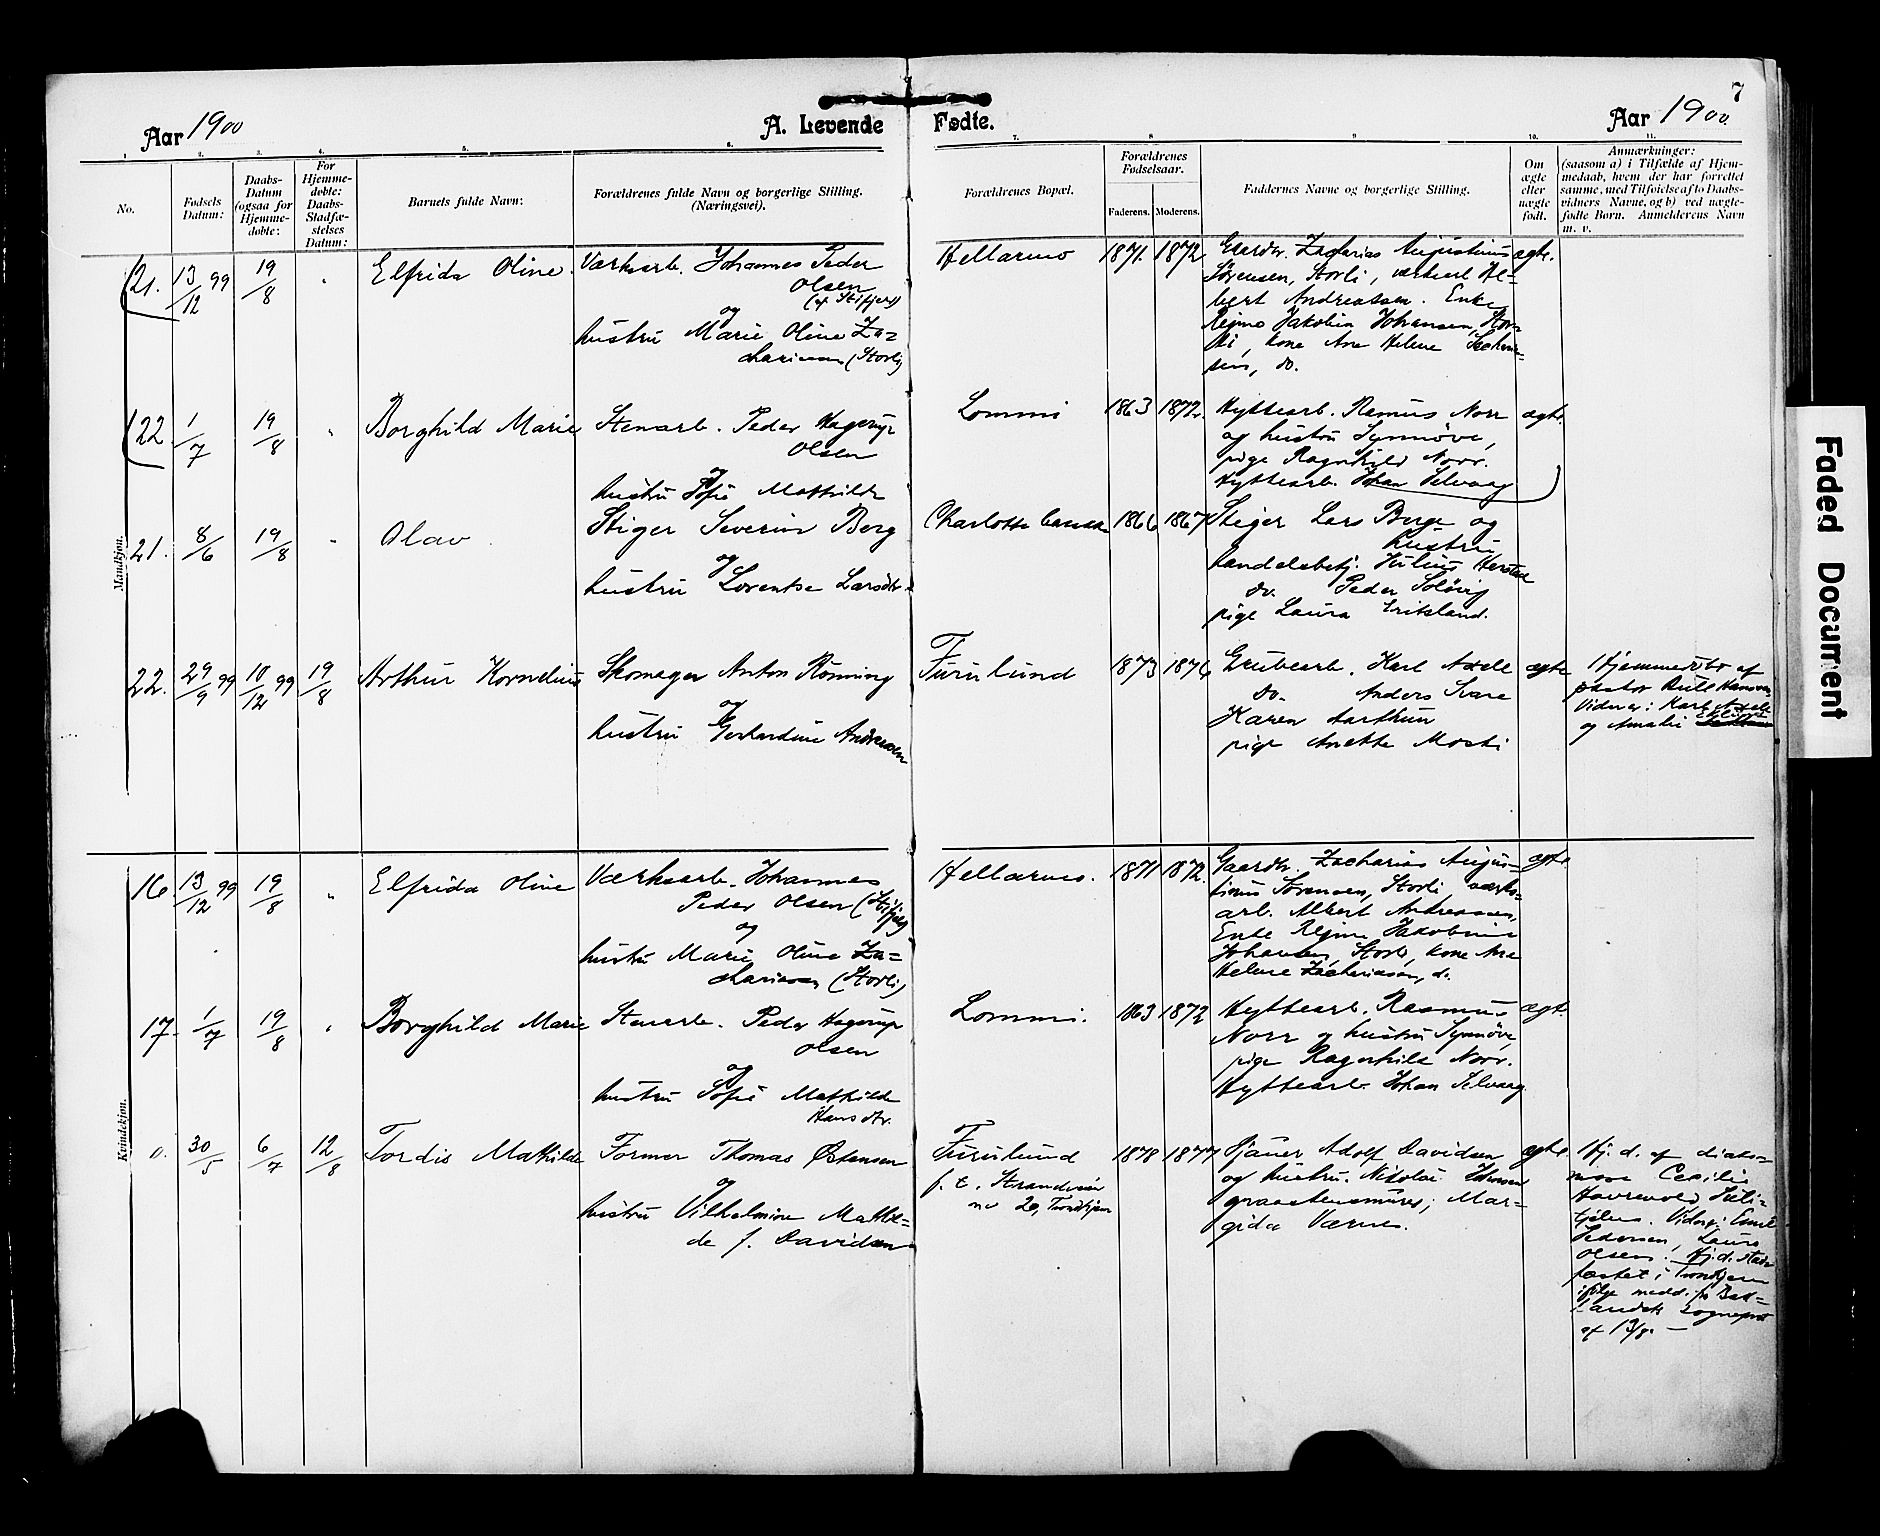 7
Aar 1900
A. Levende Fødte.
Aar 1900.
1. 2. 3. 4. 5. 6. 7. 8 9 10. 11.
No.
Fødsels Datum:
Daabs-Datum (ogsaa for Hjemmedøbte:
For Hjemmedøbte: Daabs-Stadfæstelses Datum:
Barnets fulde Navn:
Forældrenes fulde Navn og borgerlige Stilling. (Næringsvei).
Forældrenes Bopæl.
Forældrenes Fødselsaar.
Faderens. Moderens.
Faddernes Navne og borgerlige Stilling.
Om ægte eller uægte født.
Anmærkninger:
(saasom a) i Tilfælde af Hjemmedaab, hvem der har forrettet samme, med Tilføielse af to Daabsvidners Navne, og b) ved uægtefødte Børn. Anmelderens Navn m. v.
Mandkjøn.
(21. 13/12 99 19/8 " Elfrida Oline.
Værksarb. Johannes Peder
Olsen
og
hustru Marie Oline Za=
chariasen (Storli)
Hellarmo 1871. 1872
Gaardbr. Zacharias Augustinus
Sörensen, Storli, værksarb Al=
bert Andreassen. Enke
Regine Jakobine Johansen, Stor=
li, kone Ane Helene Zacharia=
sen, do.
ægte.
(22 1/7 19/8 " Borghild Marie
Stenarb. Peder Hagerup
Olsen
og
hustru Sofie Mathilde
Lommi 1863 1872.
Hyttearb. Rasmus Norr
og hustru Synnöve,
pige Ragnhild Norr.
Hyttearb. Johan Selvaag
ægte.
21. 8/6 19/8 " Olav
Stiger Severin Berg
og
hustru Lorentse Larsdtr.
Charlotta 1866 1867
Steiger Lars Berge og
hustru
handelsbetj. Julius
do. Peder Solövig
pige Laura
22. 29/9 99 10/12 99 19/8 Arthur Kornelius
Skomager Anton Rönning
og
hustru Gerhardine Andreassen
Furulund 1873 1876
Grubearb. Karl Axel
do. Anders Svare
Karen Aarthun
pige Anette Mosti
ægte
Hjemmedöbt af
pastor Bull Hansen
Vidner: Karl Axel
og Amalie
Kvindekjøn.
16 13/12 99 19/8 " Elfrida Oline
Værksarb. Johannes
Peder Olsen (Stifjeld)
og
hustru Marie Oline Za=
chariasen (Storli)
Hellarmo. 1871 1872.
Gaardbr. Zacharias Augus=
tinus Sörensen, Storli, værks=
arb. Albert Andreassen,
Enke Regine Jakobine
Johansen, Storli, kone Ane
Helene Zachariassen, do.
ægte.
17. 1/7 19/8 " Borghild Marie
Stenarb. Peder Hagerup
Olsen
og
hustru Sofie Mathilde
Hansdtr.
Lommi. 1863 1872
Hyttearb. Rasmus
Norr og hustru Synnöve,
pige Ragnhild Norr.
Hyttearb. Johan Selvaag
ægt.
0. 30/5 6/7 12/8 Tordis Mathilde
Former Thomas Østensen
og
hustru Vilhelmine Mathil=
de f. Davidsen
Furulund
f. t. Strandveien
no 20, Trondhjem
1878 1877
Pjauer Adolf Davidsen
og hustru. Nikolai Johansen
graastensmurer; Mar=
gida Værnes.
ægte.
Hj. d. af diako=
nisse Cecilie
Havrevold, Suli=
tjelma. Vidner: Emil
Pedersen, Laura
Olsen. Hj. d. stad=
fæstet i Trondhjem
ifölge medd. fra Bak=
landets sogneprest
af 13/8. —
Faded Document